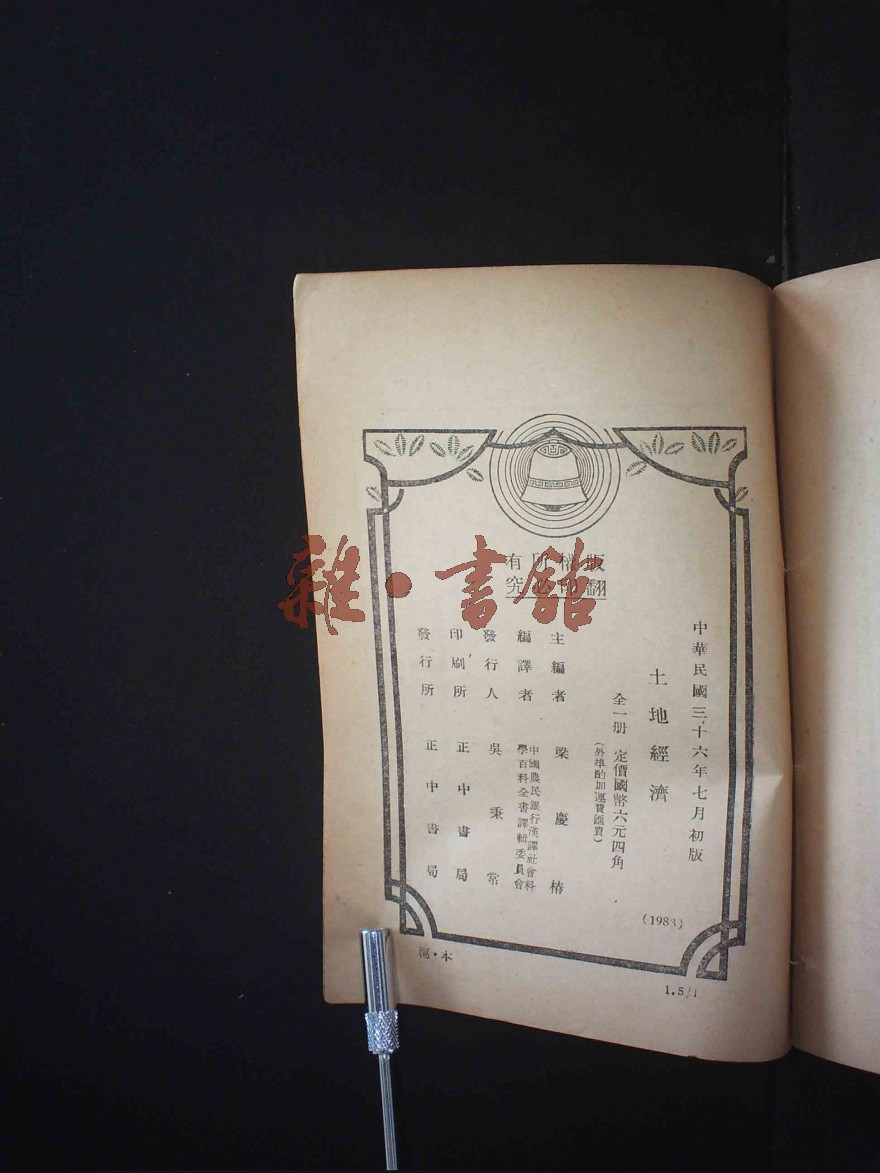 版權所有
翻印必究
中華民國三十六年七月初版
土地經濟
全一册 定價國幣六元四角
(外埠酌加運費匯費)
主編者 梁慶椿
編譯者 中國農民銀行漢譯社會科
學百科全書譯輯委員會
發行人 吳秉常
印刷所 正中書局
發行所 正中書局
(1983)
滬·本
1.5/1
雜·書館